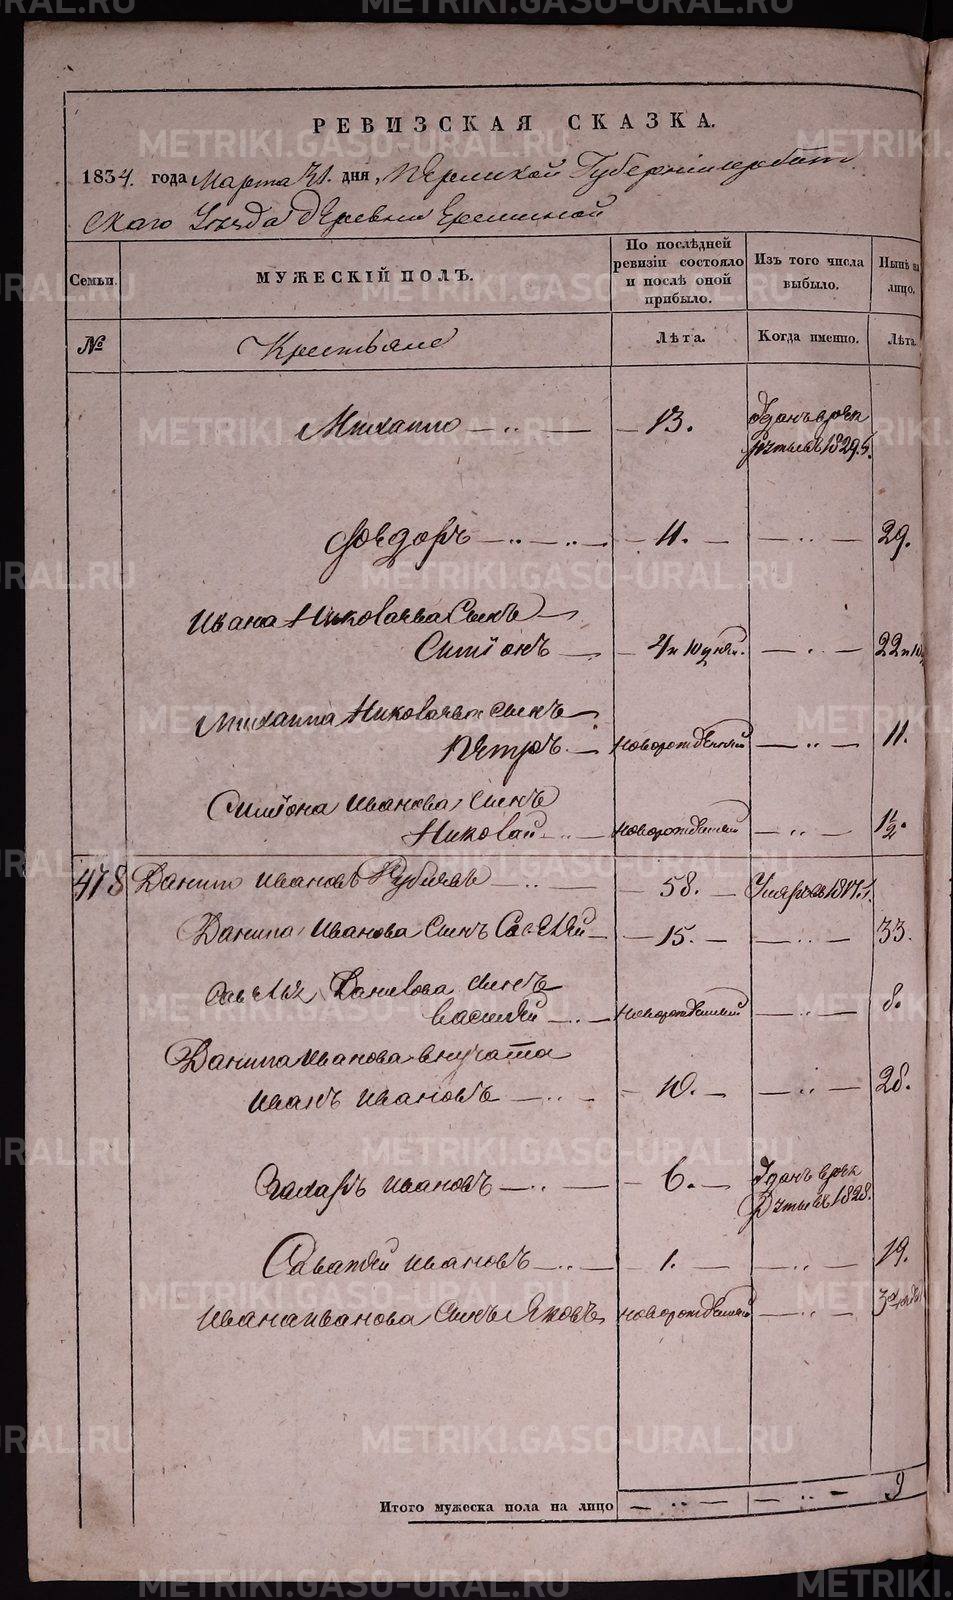 РЕВИЗСКАЯ СКАЗКА.
1834. года Марта 31. дня, Пермской Губернии Ирбит
скаго Уезда Деревни Ереминой
Семьи. МУЖЕСКІЙ ПОЛЪ. По послѣдней ревизіи состояло и послѣ оной прибыло. Изъ того числа выбыло. Нынѣ на лицо.
№ Крестьяне Лѣта. Когда именно. Лѣта.
Михаило 13. Отданъ врек
руты въ 1829.
Ѳедоръ 11. 29.
Ивана Николаева Сынъ
Симіонъ 4 и 10 дней. 22 и 10
Михаила Николаева сынъ
Петръ Новорожденный 11.
Симіона Иванова сынъ
Николай Новорожденный 1½.
478 Данило Ивановъ 58. Умръ въ 1817.
Данила Иванова Сынъ Савелей 15. 33.
Савелья Данилова сынъ
Василей Новорожденный 8.
Данила Иванова внучата
Иванъ Ивановъ 10. 28.
Захаръ Ивановъ 6. Отданъ врек
руты въ 1828.
Саватей Ивановъ 1. 19.
Ивана Иванова Сынъ Яковъ новорожденный 3
Итого мужеска пола на лицо 9
METRIKI.GASO-URAL.RU